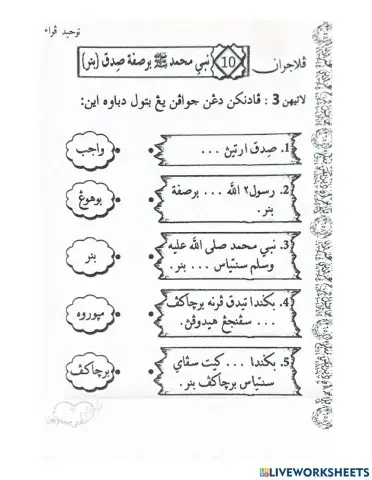 توحيد ڤراء
ڤلاجرن 10 نبي محمد ﷺ برصفة صِدق (بنر)
لاتيهن 3 : ڤادنكن دڠن جواڤن يڠ بتول دباوه اين:
1. صِدق ارتيڽ ...
واجب
2. رسول٢ الله ... برصفة
بنر.
بوهوڠ
3. نبي محمد صلى الله عليه
وسلم سنتياس ... بنر.
بنر
4. بڬيندا تيدق ڤرنه برچاكڤ
... سڤنجڠ هيدوڤڽ.
مڽوروه
5. بڬيندا ... كيت سڤاي
سنتياس برچاكڤ بنر.
برچاكڤ
LIVEWORKSHEETS